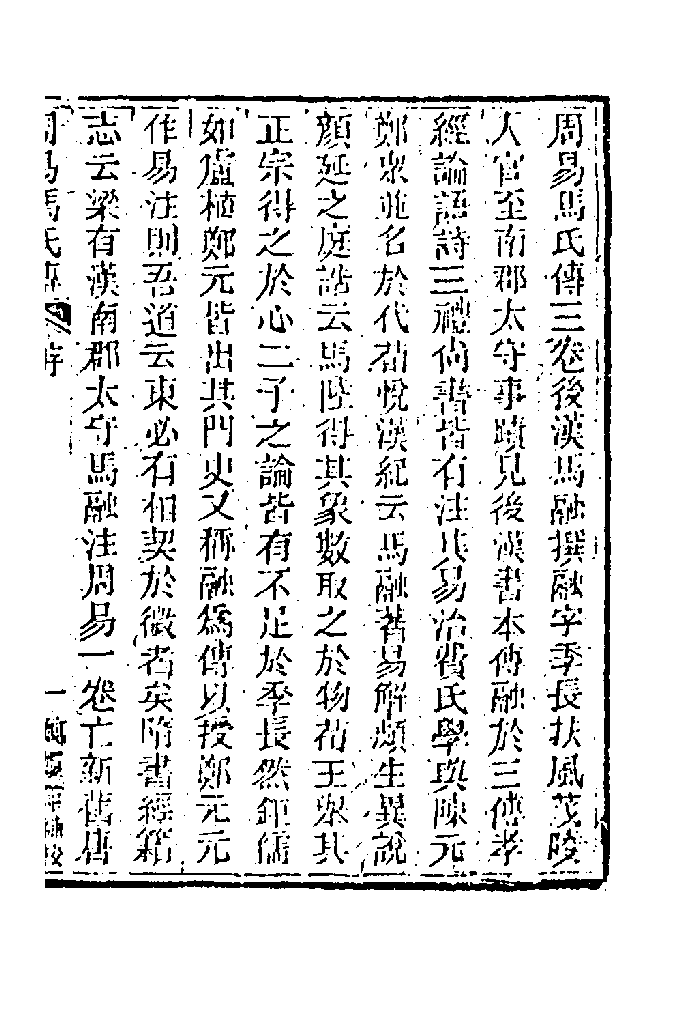 周易馬氏傳三卷後漢馬融撰融字季長扶風茂陵
人官至南郡太守事蹟見後漢書本傳融於三傳孝
經論語詩三禮尚書皆有注其易治費氏學與陳元
鄭衆並名於代荀悅漢紀云馬融著易解頗生異說
顏延之庭誥云馬陸得其象數取之於物荀王舉其
正宗得之於心二子之論皆有不足於季長然鉅儒
如盧植鄭元皆出其門史又稱融為傳以授鄭元元
作易注則吾道云東必有相契於微者矣隋書經籍
志云梁有漢南郡太守馬融注周易一卷亡新舊唐
周易馬氏傳 序 一